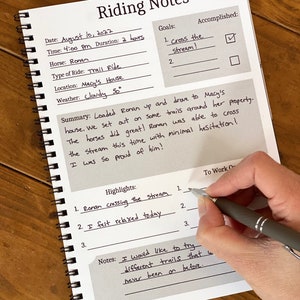 Riding Notes
Date: August 10, 2022
Time: 4:00 pm Duration: 2 hours
Horse: Ronan
Type of Ride: Trail Ride
Location: Macy's House
Weather: Cloudy 80°
Goals: Accomplished:
1. Cross the
stream!
2.
Summary: Loaded Ronan up and drove to Macy's
house. We set out on some trails around her property.
The horses did great! Ronan was able to cross
the stream this time with minimal hesitation!
I was so proud of him!
Highlights:
1. Ronan crossing the stream
2. I felt relaxed today
3.
To Work On
1.
2.
3.
Notes: I would like to try
different trails that
never been on before